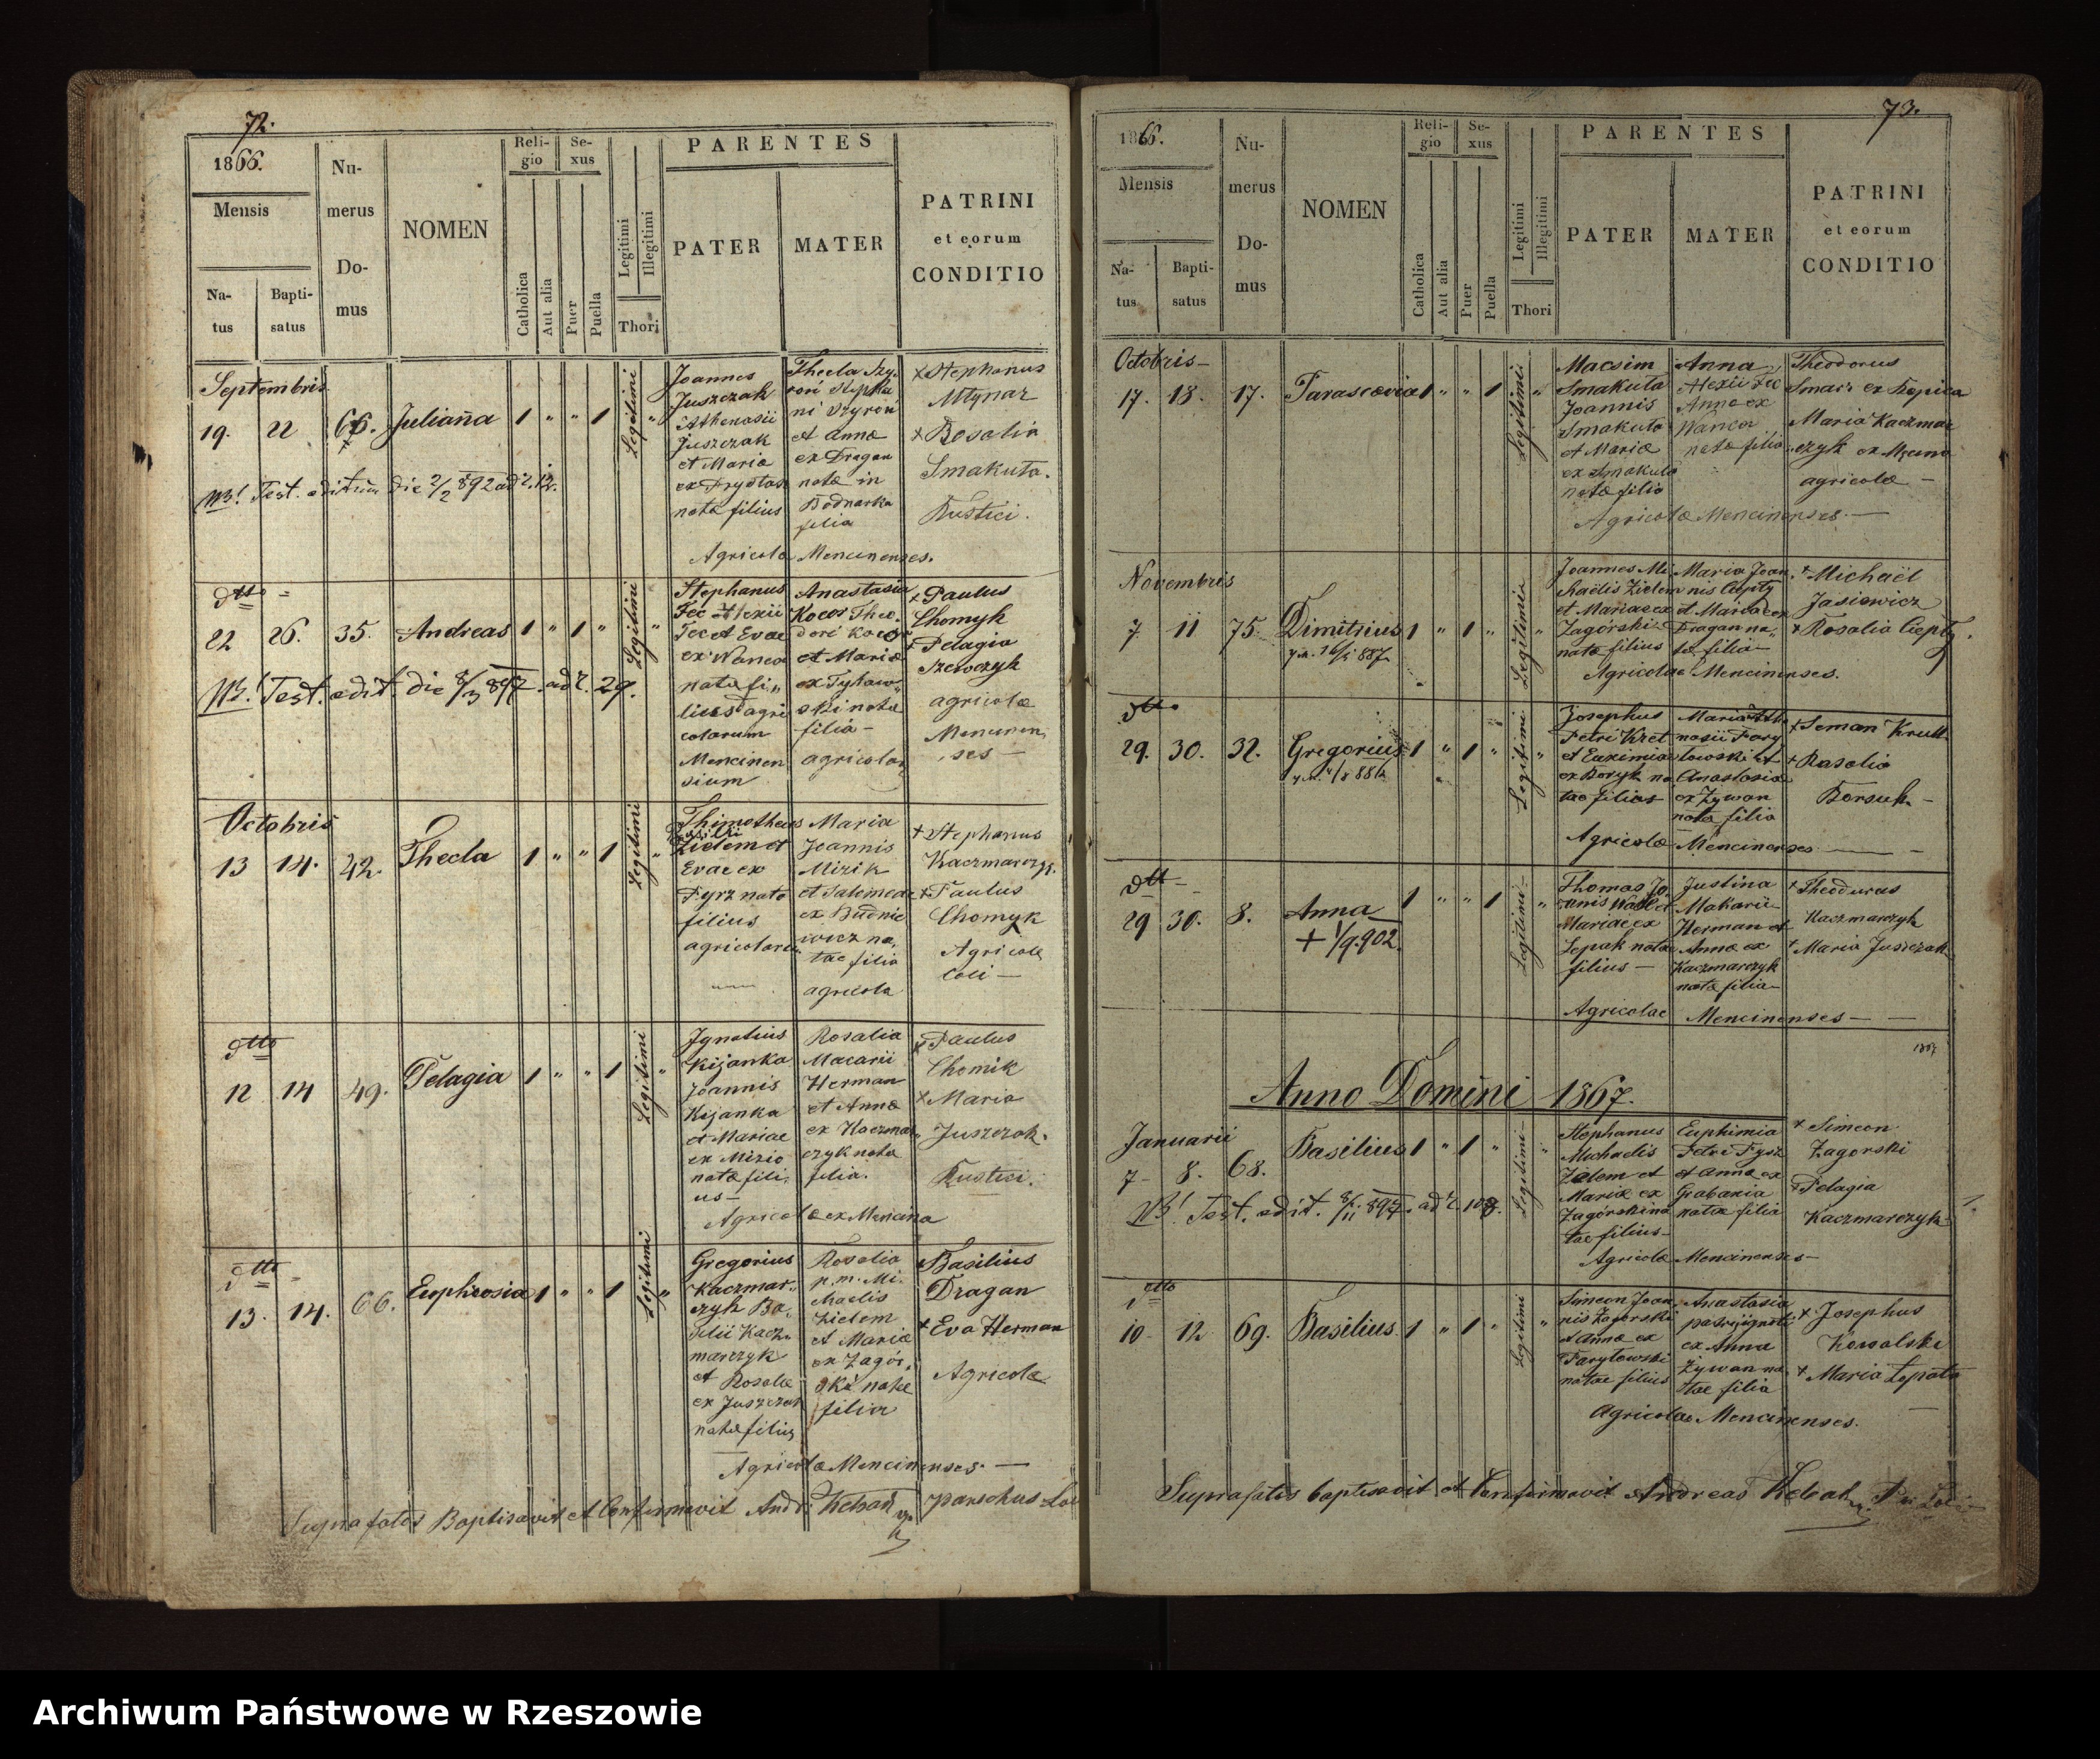 72.
1866.
Mensis
Na-
tus
Bapti-
satus
Nu-
merus
Do-
mus
NOMEN
Reli-
gio
Catholica
Aut alia
Se-
xus
Puer
Puella
Legitimi
Illegitimi
Thori
PARENTES
PATER
MATER
PATRINI
et eorum
CONDITIO
Septembris
19. 22 66. Julianna 1 " " 1 Legitimi "
Joannes
Juszczak
Athenasii
Juszczak
et Maria
nata filius
Thecla
et Anna
ex Dragan
nata in
Bodnarka
filia
+ Stephanus
Młynar
+ Rosalia
Smakuta.
Rustici.
Agricolæ Mencinenses.
NB! Test. editum die 2/2 892 ad
dtto
22 26. 35. Andreas 1 " 1 " Legitimi "
Stephanus
Fec Alexii
Fec et Evae
ex Wanca
natæ fi
lius agri
colarum
Mencinen
sium
Anastasia
Kocor Theo
dori Kocor
et Maria
filia
agricolar
+ Paulus
Chomyk
+ Pelagia
Szewczyk
agricolæ
Mencinen
ses
NB! Test. edit. die 8/3 897. ad 29.
Octobris
13 14. 42. Thecla 1 " " 1 Legitimi "
Thimotheus
Zielem et
Evae ex
Fyrz nata
filius
agricolarum
Maria
Joannis
Mizik
et Salomeae
ex Budnie
wicz na
tae filia
agricola
+ Stephanus
Kaczmarczyk.
+ Paulus
Chomyk
Agricolæ
Loci
dtto
12 14 49. Pelagia 1 " " 1 Legitimi "
Ignatius
Kijanka
Joannis
Kijanka
et Mariae
ex Mizio
natæ fili
us
Rosalia
Macarii
Herman
et Anna
ex Kaczmar
czyk nata
filia.
+ Paulus
Chomik
+ Maria
Juszczak.
Rustici.
Agricolæ ex Mencina
dtto
13. 14. 66. Euphrosia 1 " " 1 Legitimi "
Gregorius
Kaczmar
czyk Ba
silii Kacz
marczyk
et Rosalæ
ex Juszczak
natæ filius
Rosalia
p.m. Mi
chaelis
Zielem
et Maria
ex Zagór
ski natæ
filia
+ Basilius
Dragan
+ Eva Herman
Agricolæ
Agricolæ Mencinenses.
Suprafatos Baptisavit et Confirmavit Parochus
73.
1866.
Mensis
Na-
tus
Bapti-
satus
Nu-
merus
Do-
mus
NOMEN
Reli-
gio
Catholica
Aut alia
Se-
xus
Puer
Puella
Legitimi
Illegitimi
Thori
PARENTES
PATER
MATER
PATRINI
et eorum
CONDITIO
Octobris
17. 18. 17. Parascevia 1 " " 1 Legitimi "
Macsim
Smakuta
Joannis
Smakuta
et Mariæ
ex Smakuta
natæ filio
Anna
Alexii Fec
Anna ex
Wanca
natæ filia
Theodorus
Maria Kaczmar
czyk ex Mecina
agricolæ
Agricolæ Mencinenses.
Novembris
7 11 75. Dimitrius 1 " 1 " Legitimi "
Joannes Mi
chaëlis Zielem
et Mariae ex
Zagórski
natæ filius
Maria Joan
nis Ciepły
et Mariae ex
Dragan na
tæ filia
+ Michaël
Jasiewicz
+ Rosalia Ciepły.
Agricolae Mencinenses.
dtto
29. 30. 32. Gregorius 1 " 1 " Legitimi "
Josephus
Petri Kret
et Euximiæ
ex Boryk na
tae filius
Maria Atha
nasii Fary
towski et
Anastasiæ
ex Zywan
nata filia
+ Seman Krull
+ Rasalia
Borsuk
Agricolæ Mencinenses
dtto
29 30. 8. Anna 1 " " 1 Legitimi "
+ 1/9.902.
Thomas Jo
annis Wasl et
Mariae ex
Lepak natae
filius
Justina
Makarii
Herman et
Annæ ex
Kaczmarczyk
natæ filia
+ Theodurus
Kaczmarczyk
+ Maria Juszczak
Agricolae Mencinenses
Anno Domini 1867.
Januarii
7 8. 68. Basilius 1 " 1 " Legitimi "
Stephanus
Michaelis
Zielem et
Mariæ ex
Zagórski na
tae filius
Euphimia
Petri Fysz
et Annæ ex
Grabania
natæ filia
+ Simeon
Zagorski
+ Pelagia
Kaczmarczyk
NB! Test. edit. 8/11 897. ad
Agricolæ Mencinenses
dtto
10 12 69. Basilius. 1 " 1 " Legitimi "
Simeon Joan
nis Zagorski
et Annæ ex
Farytowski
natae filius
Anastasia
patris ignoti
ex Anna
Zywan na
tae filia
+ Josephus
Kowalski
+ Maria Łopata
Agricolae Mencinenses.
Suprafatos baptisavit et Confirmavit Andreas
Archiwum Państwowe w Rzeszowie